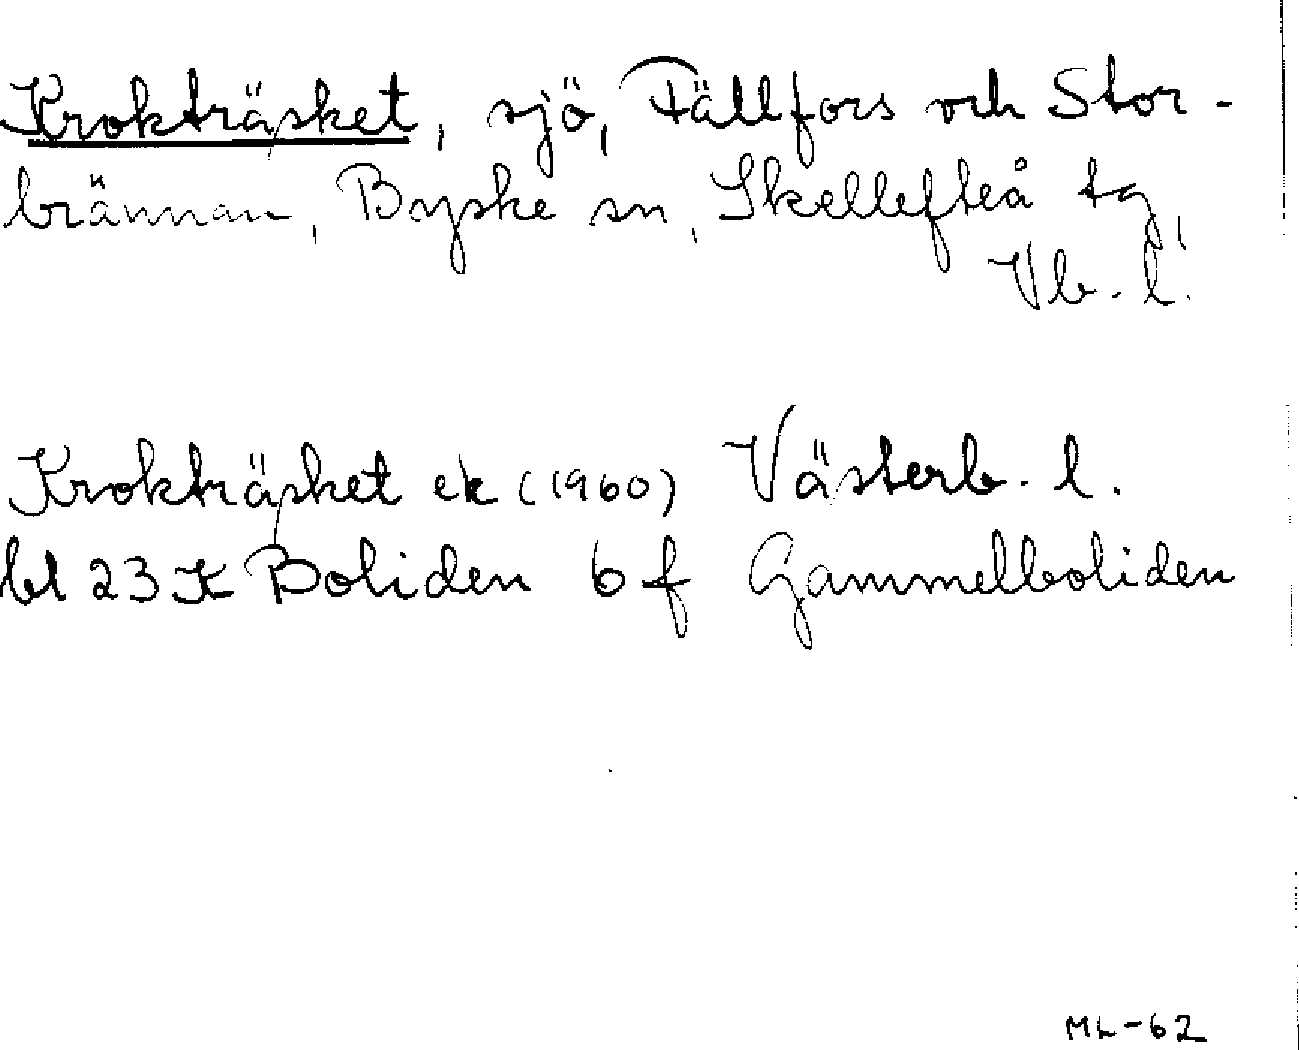 Krokträsket, sjö, Fällfors och Stor-
brännan, Byske sn, Skellefteå tg,
Vb. l.
Krokträsket ek (1960) Västerb. l.
bl 23 K Boliden 6 f Gammelboliden
ML-62